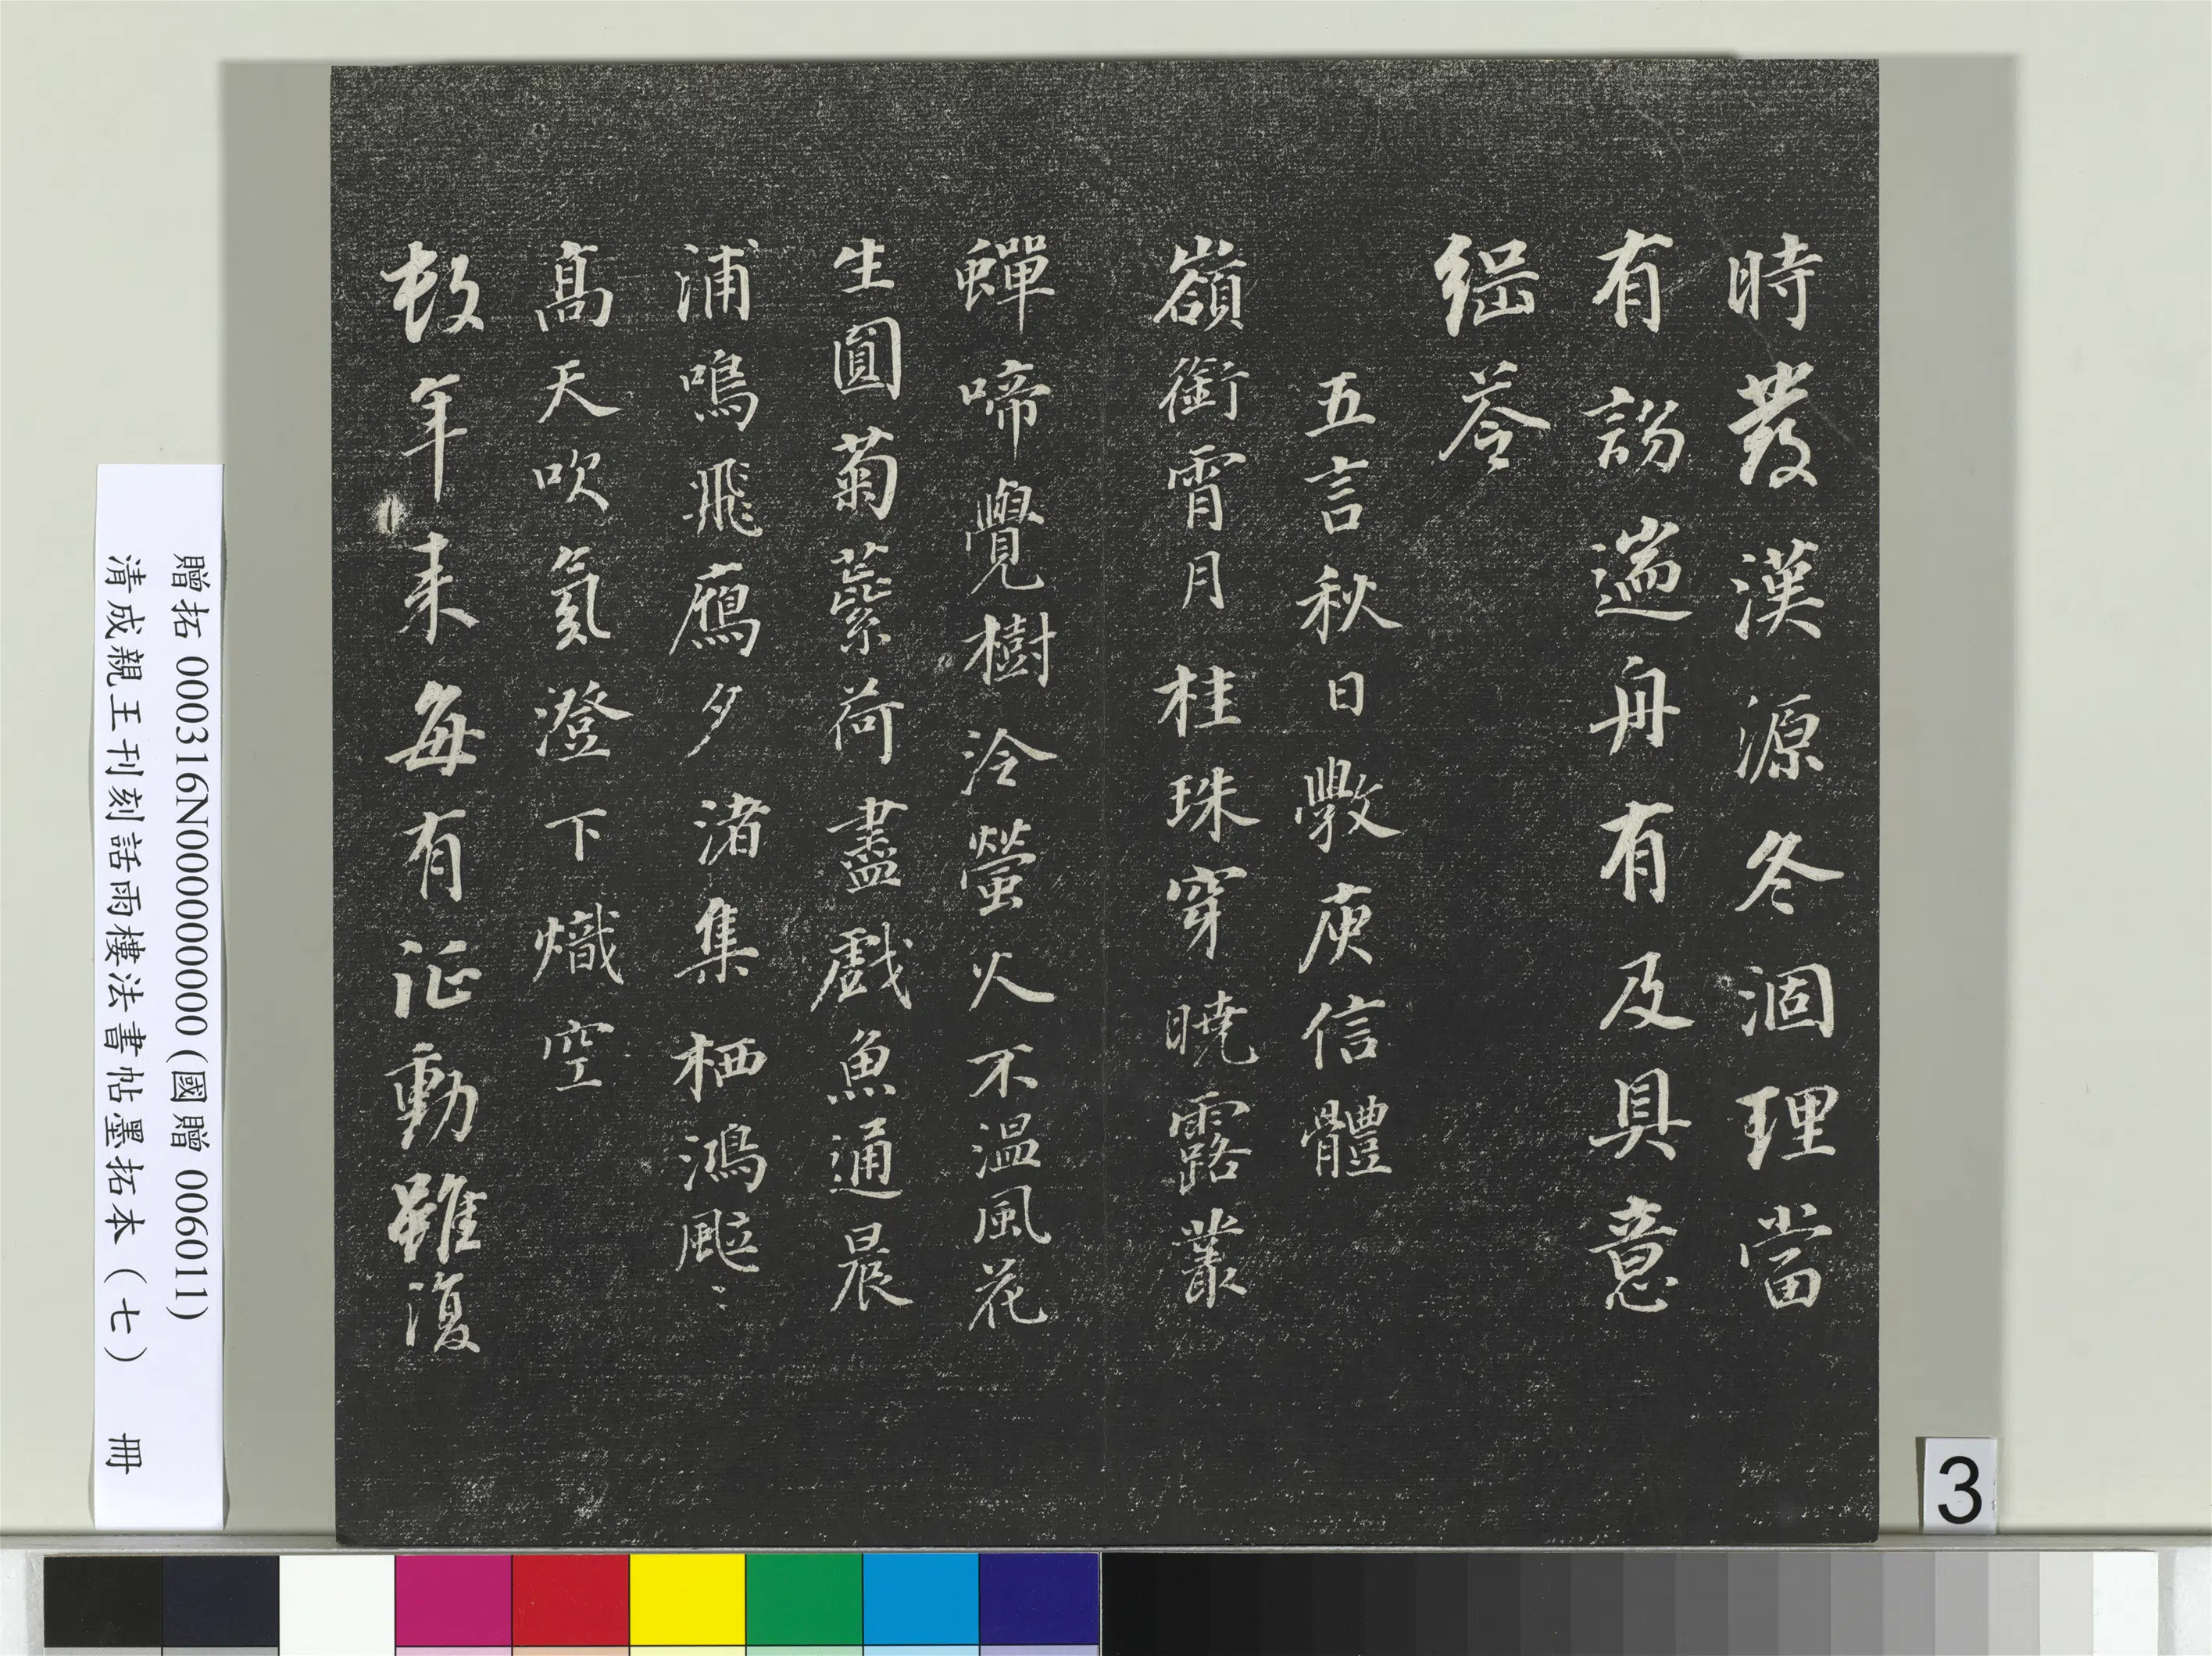 時發漢源冬涸理當
有遄舟有及具意
荅
五言秋日斆庾信體
嶺銜霄月桂珠穿曉露叢
蟬啼覺樹冷螢火不温風花
生圓菊蘂荷盡戲魚通晨
浦鳴飛鴈夕渚集栖鴻颯〻
高天吹氛澄下熾空
年来每有動雖復
贈拓 000316N000000000 (國贈 006011)
清成親王刊刻話雨樓法書帖墨拓本（七） 冊
3